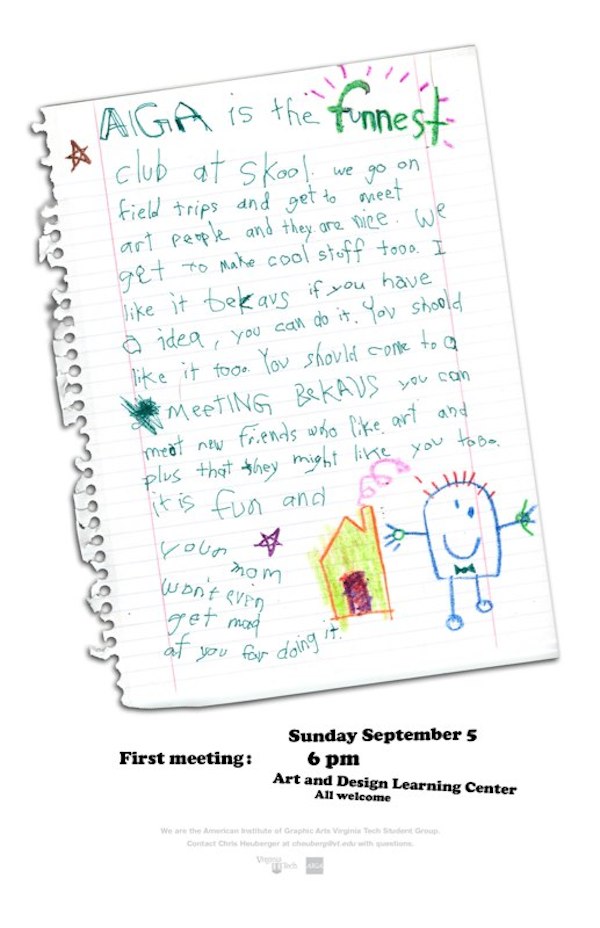 AIGA is the funnest
club at skool. we go on
field trips and get to meet
art people and they are nice. We
get to make cool stuff tooo. I
like it bekavs if you have
a idea, you can do it. You should
like it tooo. You should come to a
MEETING BEKAUS you can
meet new friends who like art and
plus that they might like you tooo.
it is fun and
your mom
won't even
get mad
at you for doing it.
First meeting:
Sunday September 5
6 pm
Art and Design Learning Center
All welcome
We are the American Institute of Graphic Arts Virginia Tech Student Group.
Contact Chris Heuberger at cheuberg@vt.edu with questions.
Virginia Tech
AIGA